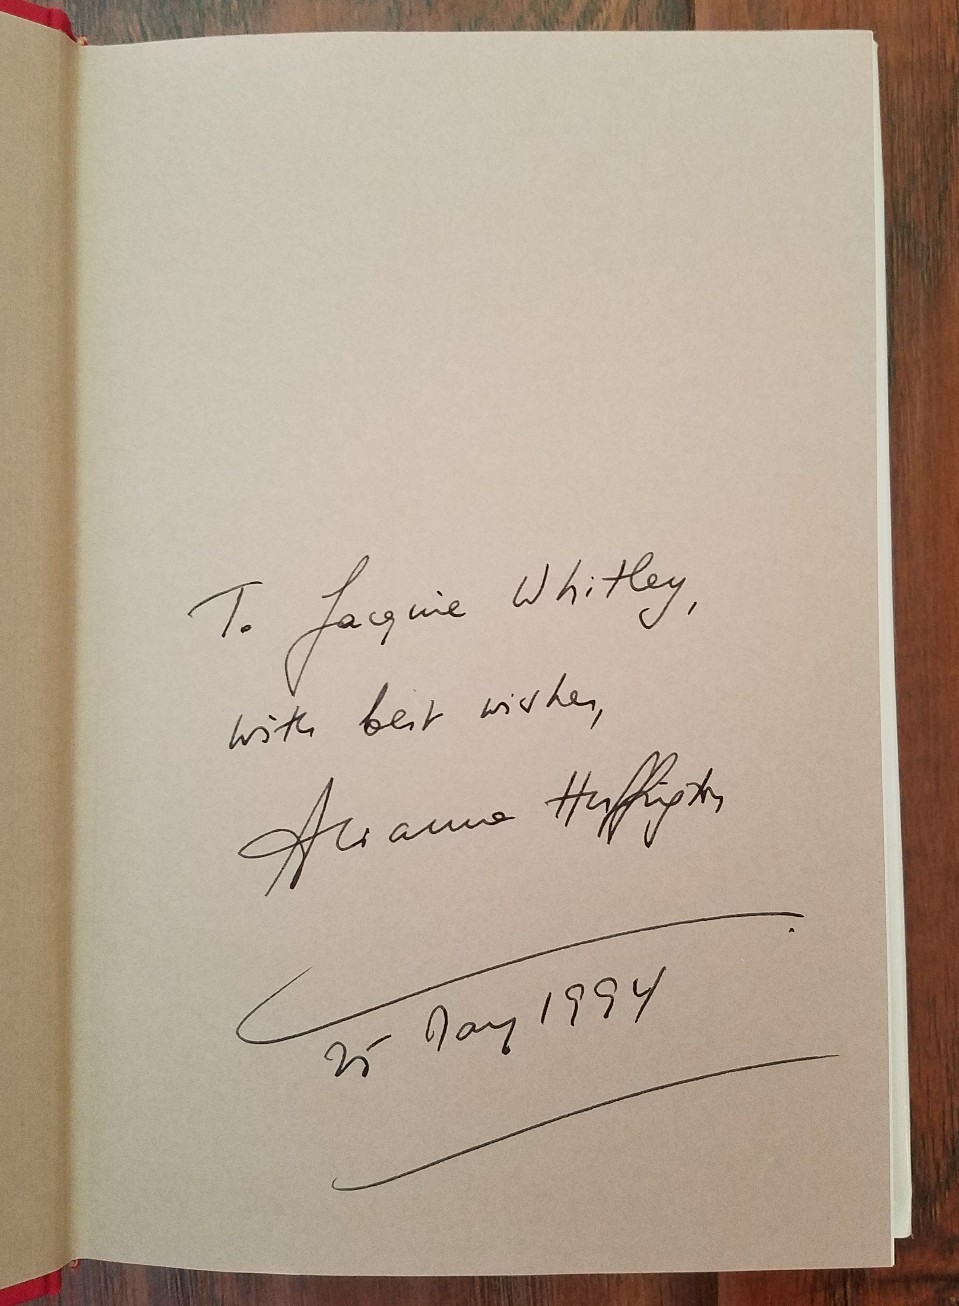 To Jacquie Whitley,
with best wishes,
Arianna Huffington
25 May 1994